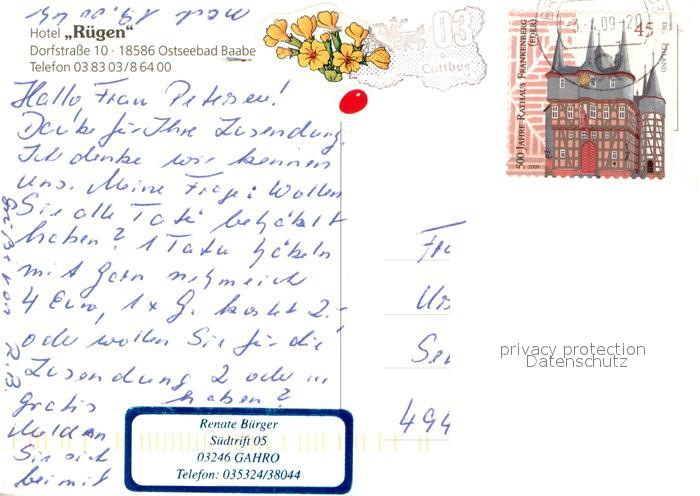 Hotel „Rügen"
Dorfstraße 10 · 18586 Ostseebad Baabe
Telefon 03 83 03/8 64 00
Hallo, Frau Petersen!
Danke für Ihre Zusendung.
Ich denke wir kennen
uns. Meine Frage: Wollen
Sie alle behäkelt
haben? 1 häkeln
mit Garn
4 Euro, 1 x G. kostet 2.-
oder wollen Sie für die
Zusendung 2 oder
gratis haben?
Melden
Sie sich
bei mir
Grüße von R.B.
Renate Bürger
Südtrift 05
03246 GAHRO
Telefon: 035324/38044
03
Cottbus
09-20
45
500 JAHRE RATHAUS FRANKENBERG
(EDER)
2009
Fra
Urs
494
privacy protection
Datenschutz